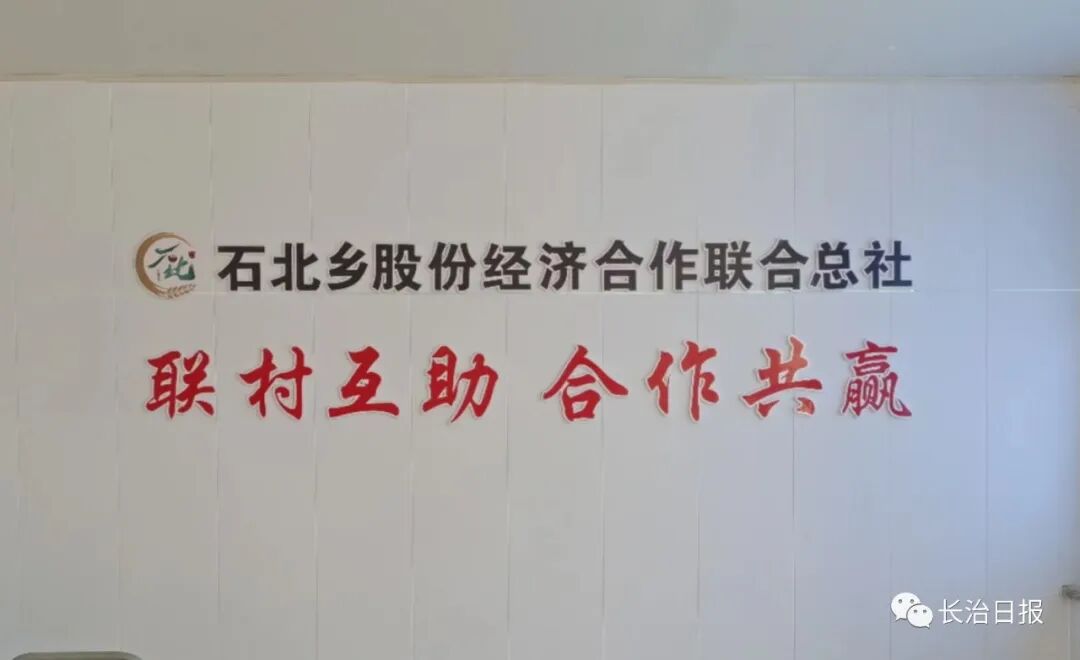 石北
石北乡股份经济合作联合总社
联村互助 合作共赢
长治日报